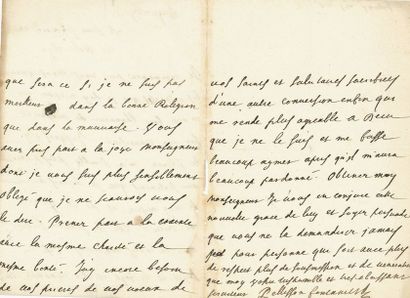 que sera ce si je ne suis pas
meilleur dans la bonne Religion
que dans la mauvaise. Vous
avez pris part a la joye monseigneur
dont je vous suis plus sensiblement
obligé que je ne scaurois vous
le dire. Prenez part a la
avec la mesme charité et la
mesme bonté. J'ay encore besoin
de vos prieres de vos voeux de
vos saints et salutaires
d'une autre conversion enfin qui
me rende plus agreable a Dieu
que je ne le suis et me fasse
beaucoup aymer apres qu'il m'aura
beaucoup pardonné. Obtenez moy
monseigneur je vous en conjure cette
nouvelle grace de luy et soyez persuadé
que vous ne la demanderez jamais
pour personne que soit avec plus
de respect plus de soumission et de veneration
que moy vostre treshumble et tresobeissant
serviteur Pellisson Fontanier